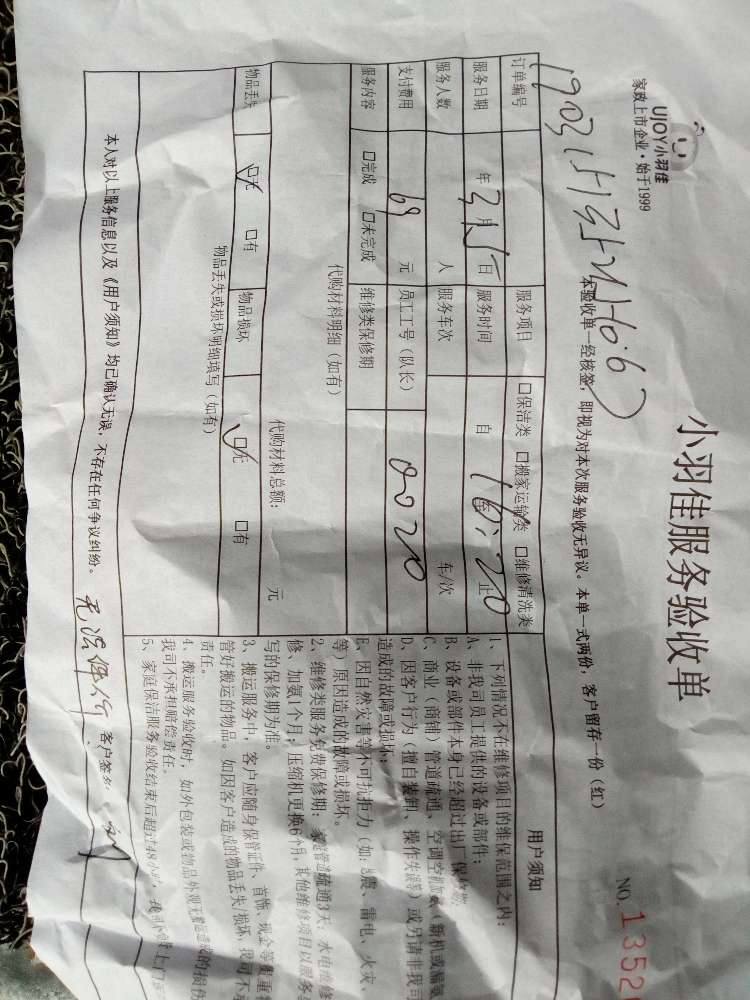 小羽佳服务验收单
UJOY小羽佳
家政上市企业·始于1999
NO.1352
本验收单一经核签,即视为对本次服务验收无异议。本单一式两份,客户留存一份(红)
订单编号
服务项目 口保洁类 口搬家运输类 口维修清洗类
服务日期 年3月5日 服务时间 自 16:20 至 止
服务人数 人 服务车次 车/次
支付费用 69 元 员工工号(队长) 0020
服务内容 口完成 口未完成 维修类保修期
代购材料明细(如有)
代购材料总额: 元
物品丢失 口无 口有 物品损坏 口无 口有
物品丢失或损坏明细填写(如有)
用户须知
1、下列情况不在维修项目的维保范围之内:
A、非我司员工提供的设备或部件;
B、设备或部件本身已经超过出厂保修期;
C、商业(商铺)管道疏通、空调空调加氨(新机或漏氨
D、因客户行为(擅自装卸、操作失误等)或另请非我司
造成的故障或损坏;
E、因自然灾害等不可抗拒力(如:地震、雷电、火灾、
等)原因造成的故障或损坏。
2、维修类服务免费保修期:家庭管道疏通3天,水电维修
修、加氨1个月,压缩机更换6个月,其他维修项目以服务单
写的保修期为准。
3、搬运服务中,客户应随身保管证件、首饰、现金等贵重
管好搬运的物品。如因客户造成的物品丢失/损坏,我司不承
责任。
4、搬运服务验收时,如外包装或物品外观无搬运造成的损伤
我司不承担赔偿责任。
5、家庭保洁服务验收结束后超过48小时,我司不
本人对以上服务信息以及《用户须知》均已确认无误,不存在任何争议纠纷。 客户签名: 刘